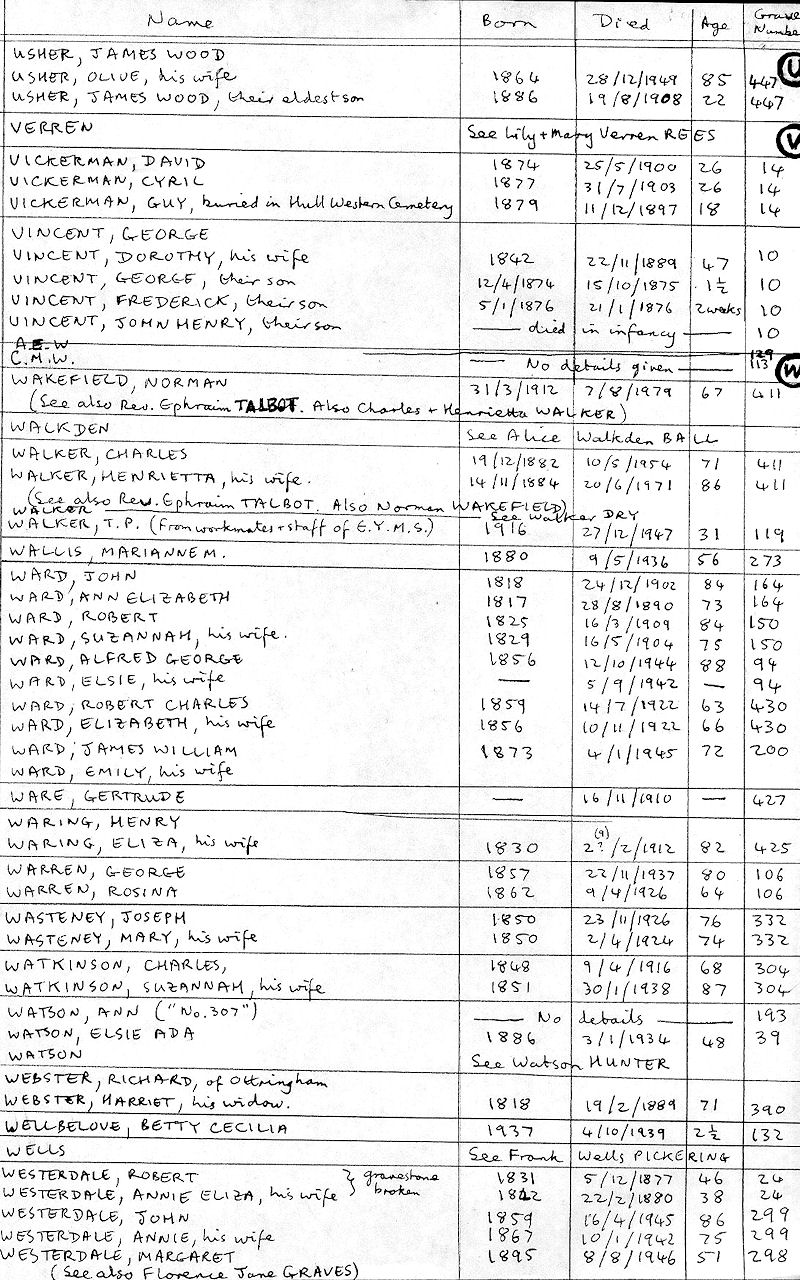 Name Born Died Age Grave Number
USHER, JAMES WOOD U
USHER, OLIVE, his wife 1864 28/12/1949 85 447
USHER, JAMES WOOD, their eldest son 1886 19/8/1908 22 447
VERREN See Lily + Mary Verren REES V
VICKERMAN, DAVID 1874 25/5/1900 26 14
VICKERMAN, CYRIL 1877 31/7/1903 26 14
VICKERMAN, GUY, buried in Hull Western Cemetery 1879 11/12/1897 18 14
VINCENT, GEORGE
VINCENT, DOROTHY, his wife 1842 22/11/1889 47 10
VINCENT, GEORGE, their son 12/4/1874 15/10/1875 1½ 10
VINCENT, FREDERICK, their son 5/1/1876 21/1/1876 2 weeks 10
VINCENT, JOHN HENRY, their son — died in infancy — 10
A.E.W 129
C.M.W. — No details given — 113 W
WAKEFIELD, NORMAN 31/3/1912 7/8/1979 67 411
(See also Rev. Ephraim TALBOT. Also Charles + Henrietta WALKER)
WALKDEN See Alice Walkden BALL
WALKER, CHARLES 19/12/1882 10/5/1954 71 411
WALKER, HENRIETTA, his wife. 14/11/1884 20/6/1971 86 411
(See also Rev. Ephraim TALBOT. Also Norman WAKEFIELD)
WALKER — See Walker DRY
WALKER, T.P. (From workmates + staff of E.Y.M.S.) 1916 27/12/1947 31 119
WALLIS, MARIANNE M. 1880 9/5/1936 56 273
WARD, JOHN 1818 24/12/1902 84 164
WARD, ANN ELIZABETH 1817 28/8/1890 73 164
WARD, ROBERT 1825 16/3/1909 84 150
WARD, SUZANNAH, his wife. 1829 16/5/1904 75 150
WARD, ALFRED GEORGE 1856 12/10/1944 88 94
WARD, ELSIE, his wife — 5/9/1942 — 94
WARD, ROBERT CHARLES 1859 14/7/1922 63 430
WARD, ELIZABETH, his wife 1856 10/11/1922 66 430
WARD, JAMES WILLIAM 1873 4/1/1945 72 200
WARD, EMILY, his wife
WARE, GERTRUDE — 16/11/1910 — 427
WARING, HENRY
WARING, ELIZA, his wife 1830 2?(9)/2/1912 82 425
WARREN, GEORGE 1857 22/11/1937 80 106
WARREN, ROSINA 1862 9/4/1926 64 106
WASTENEY, JOSEPH 1850 23/11/1926 76 332
WASTENEY, MARY, his wife 1850 2/4/1924 74 332
WATKINSON, CHARLES, 1848 9/4/1916 68 304
WATKINSON, SUZANNAH, his wife 1851 30/1/1938 87 304
WATSON, ANN ("No. 307") — No details — 193
WATSON, ELSIE ADA 1886 3/1/1934 48 39
WATSON See Watson HUNTER
WEBSTER, RICHARD, of Ottringham
WEBSTER, HARRIET, his widow. 1818 19/2/1889 71 390
WELLBELOVE, BETTY CECILIA 1937 4/10/1939 2½ 132
WELLS See Frank Wells PICKERING
WESTERDALE, ROBERT } gravestone 1831 5/12/1877 46 24
WESTERDALE, ANNIE ELIZA, his wife } broken 1842 22/2/1880 38 24
WESTERDALE, JOHN 1859 16/4/1945 86 299
WESTERDALE, ANNIE, his wife 1867 10/1/1942 75 299
WESTERDALE, MARGARET 1895 8/8/1946 51 298
(See also Florence Jane GRAVES)